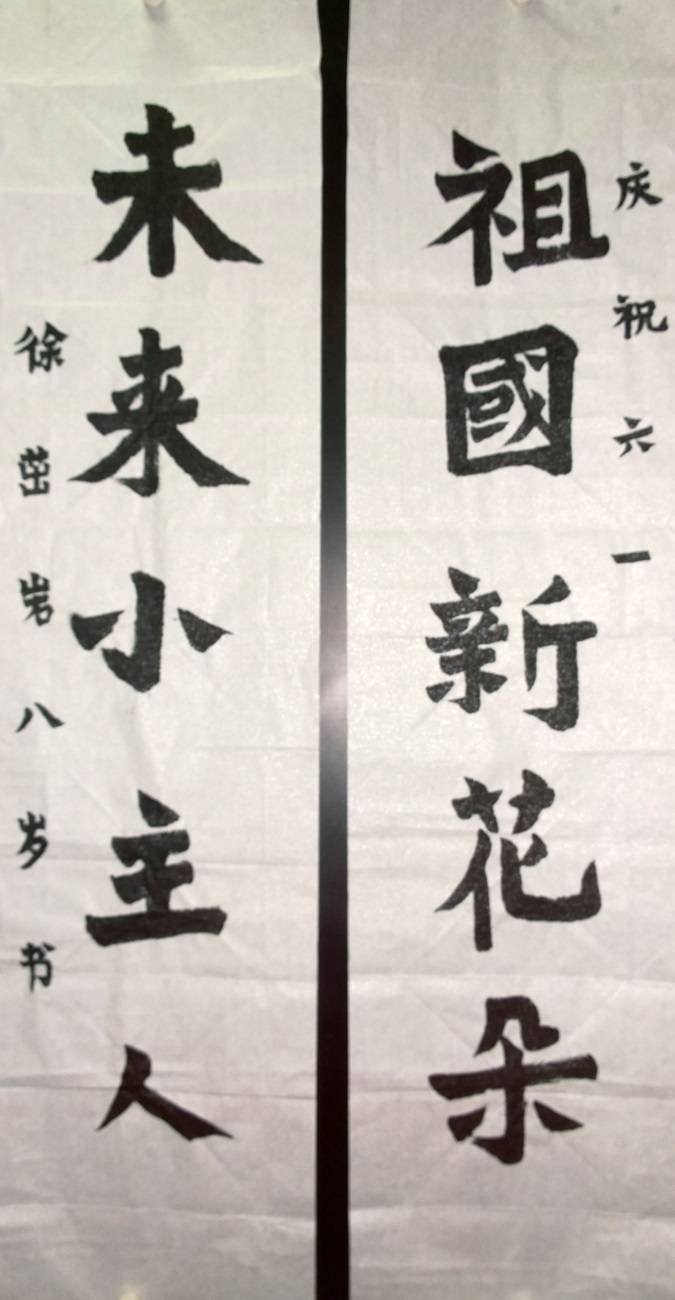 庆祝六一
祖國新花朵
未来小主人
徐茁岩八岁书